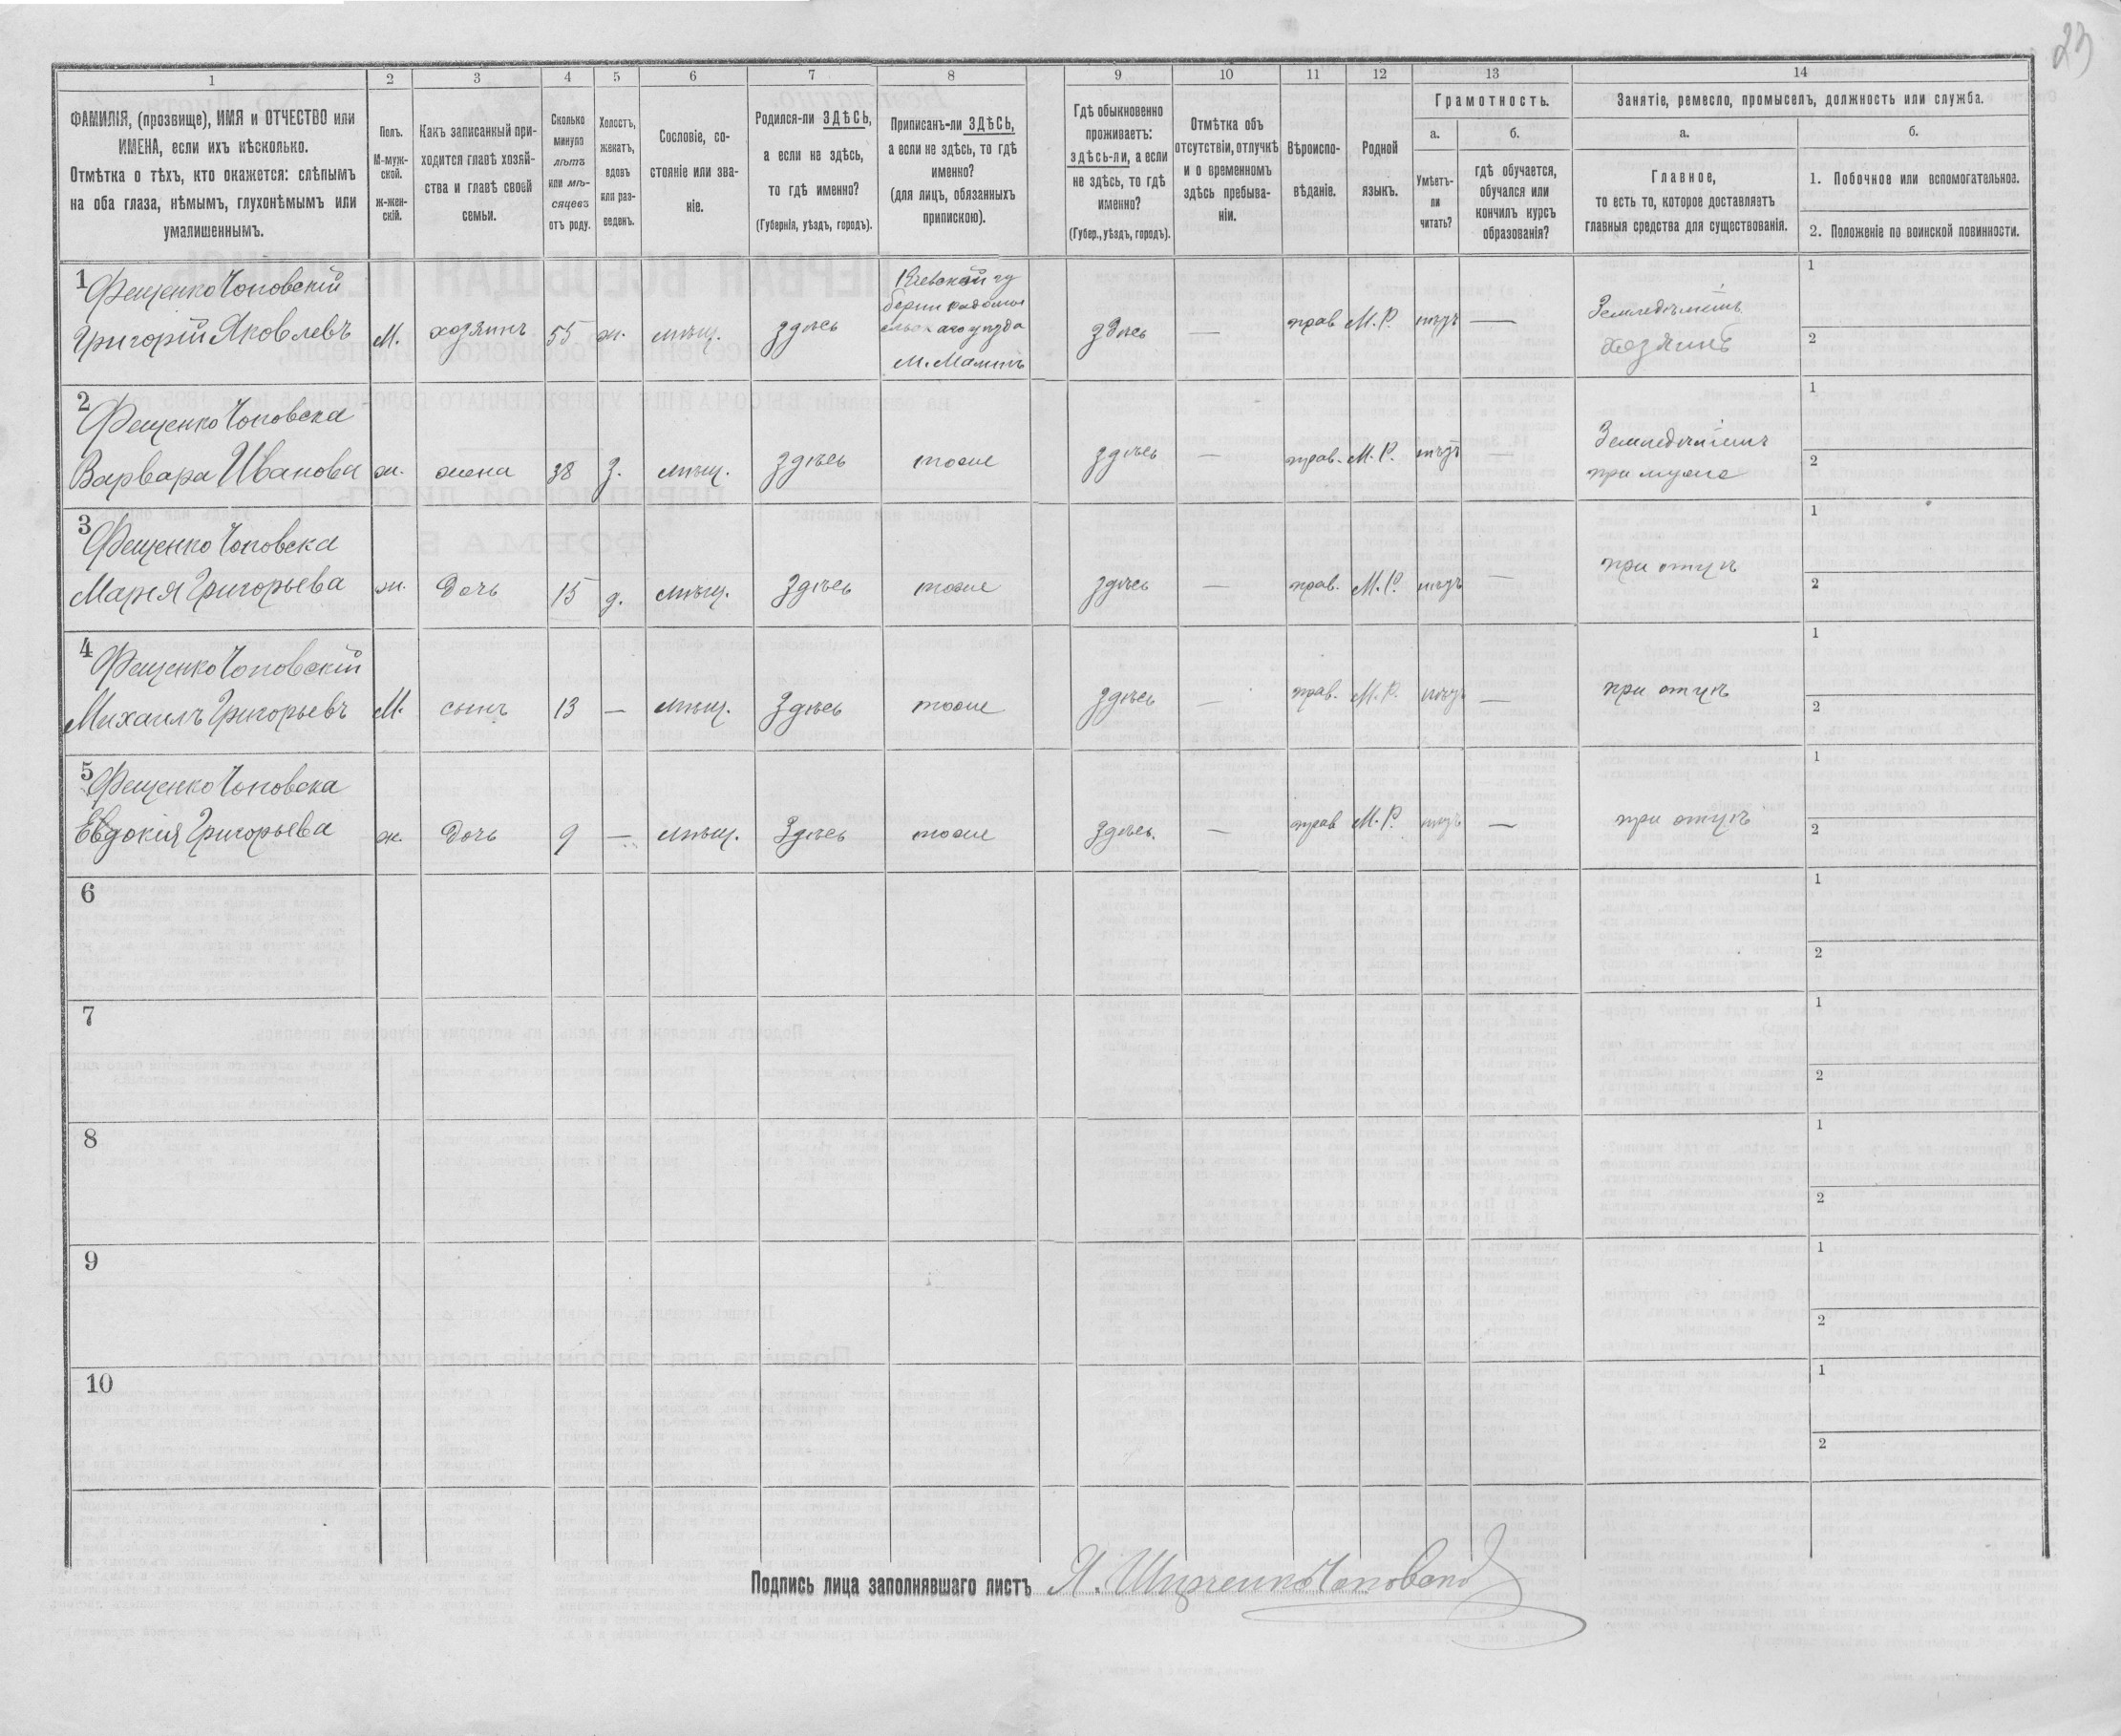 23
1 2 3 4 5 6 7 8 9 10 11 12 13 14
ФАМИЛІЯ, (прозвище), ИМЯ и ОТЧЕСТВО или
ИМЕНА, если ихъ нѣсколько.
Отмѣтка о тѣхъ, кто окажется: слѣпымъ
на оба глаза, нѣмымъ, глухонѣмымъ или
умалишеннымъ.
Полъ.
М-муж-
ской.
ж-жен-
скій.
Какъ записанный при-
ходится главѣ хозяй-
ства и главѣ своей
семьи.
Сколько
минуло
лѣтъ
или мѣ-
сяцевъ
отъ роду.
Холостъ,
женатъ,
вдовъ
или раз-
веденъ.
Сословіе, со-
стояніе или зва-
ніе.
Родился-ли ЗДѢСЬ,
а если не здѣсь,
то гдѣ именно?
(Губернія, уѣздъ, городъ).
Приписанъ-ли ЗДѢСЬ,
а если не здѣсь, то гдѣ
именно?
(для лицъ, обязанныхъ
припискою).
Гдѣ обыкновенно
проживаетъ:
здѣсь-ли, а если
не здѣсь, то гдѣ
именно?
(Губер., уѣздъ, городъ).
Отмѣтка объ
отсутствіи, отлучкѣ
и о временномъ
здѣсь пребыва-
ніи.
Вѣроиспо-
вѣданіе.
Родной
языкъ.
Грамотность.
а.
Умѣетъ-
ли
читать?
б.
гдѣ обучается,
обучался или
кончилъ курсъ
образованія?
Занятіе, ремесло, промыселъ, должность или служба.
а.
Главное,
то есть то, которое доставляетъ
главныя средства для существованія.
б.
1. Побочное или вспомогательное.
2. Положеніе по воинской повинности.
1 Фещенко Чоповскій
Григорій Яковлевъ
М. хозяинъ 55 ж. мѣщ. здѣсь
Кіевской гу
берніи радомы
сльскаго уѣзда
М. Малинъ
здѣсь — прав М.Р. нѣтъ —
Земледѣліемъ
хозяинъ
1
2
2 Фещенко Чоповска
Варвара Иванова ж. жена 38 з. мѣщ. здѣсь тоже здѣсь — прав. М.Р. нѣтъ —
Земледѣліемъ
при мужѣ
1
2
3 Фещенко Чоповска
Марія Григорьева ж. дочь 15 д. мѣщ. здѣсь тоже здѣсь — прав. М.Р. нѣтъ — при отцѣ
1
2
4 Фещенко Чоповскій
Михаилъ Григорьевъ М. сынъ 13 — мѣщ. здѣсь тоже здѣсь — прав. М.Р. нѣтъ — при отцѣ
1
2
5 Фещенко Чоповска
Евдокія Григорьева ж. дочь 9 — мѣщ. здѣсь тоже здѣсь. — прав М.Р. нѣтъ — при отцѣ
1
2
6 1
2
7 1
2
8 1
2
9 1
2
10 1
2
Подпись лица заполнявшаго листъ